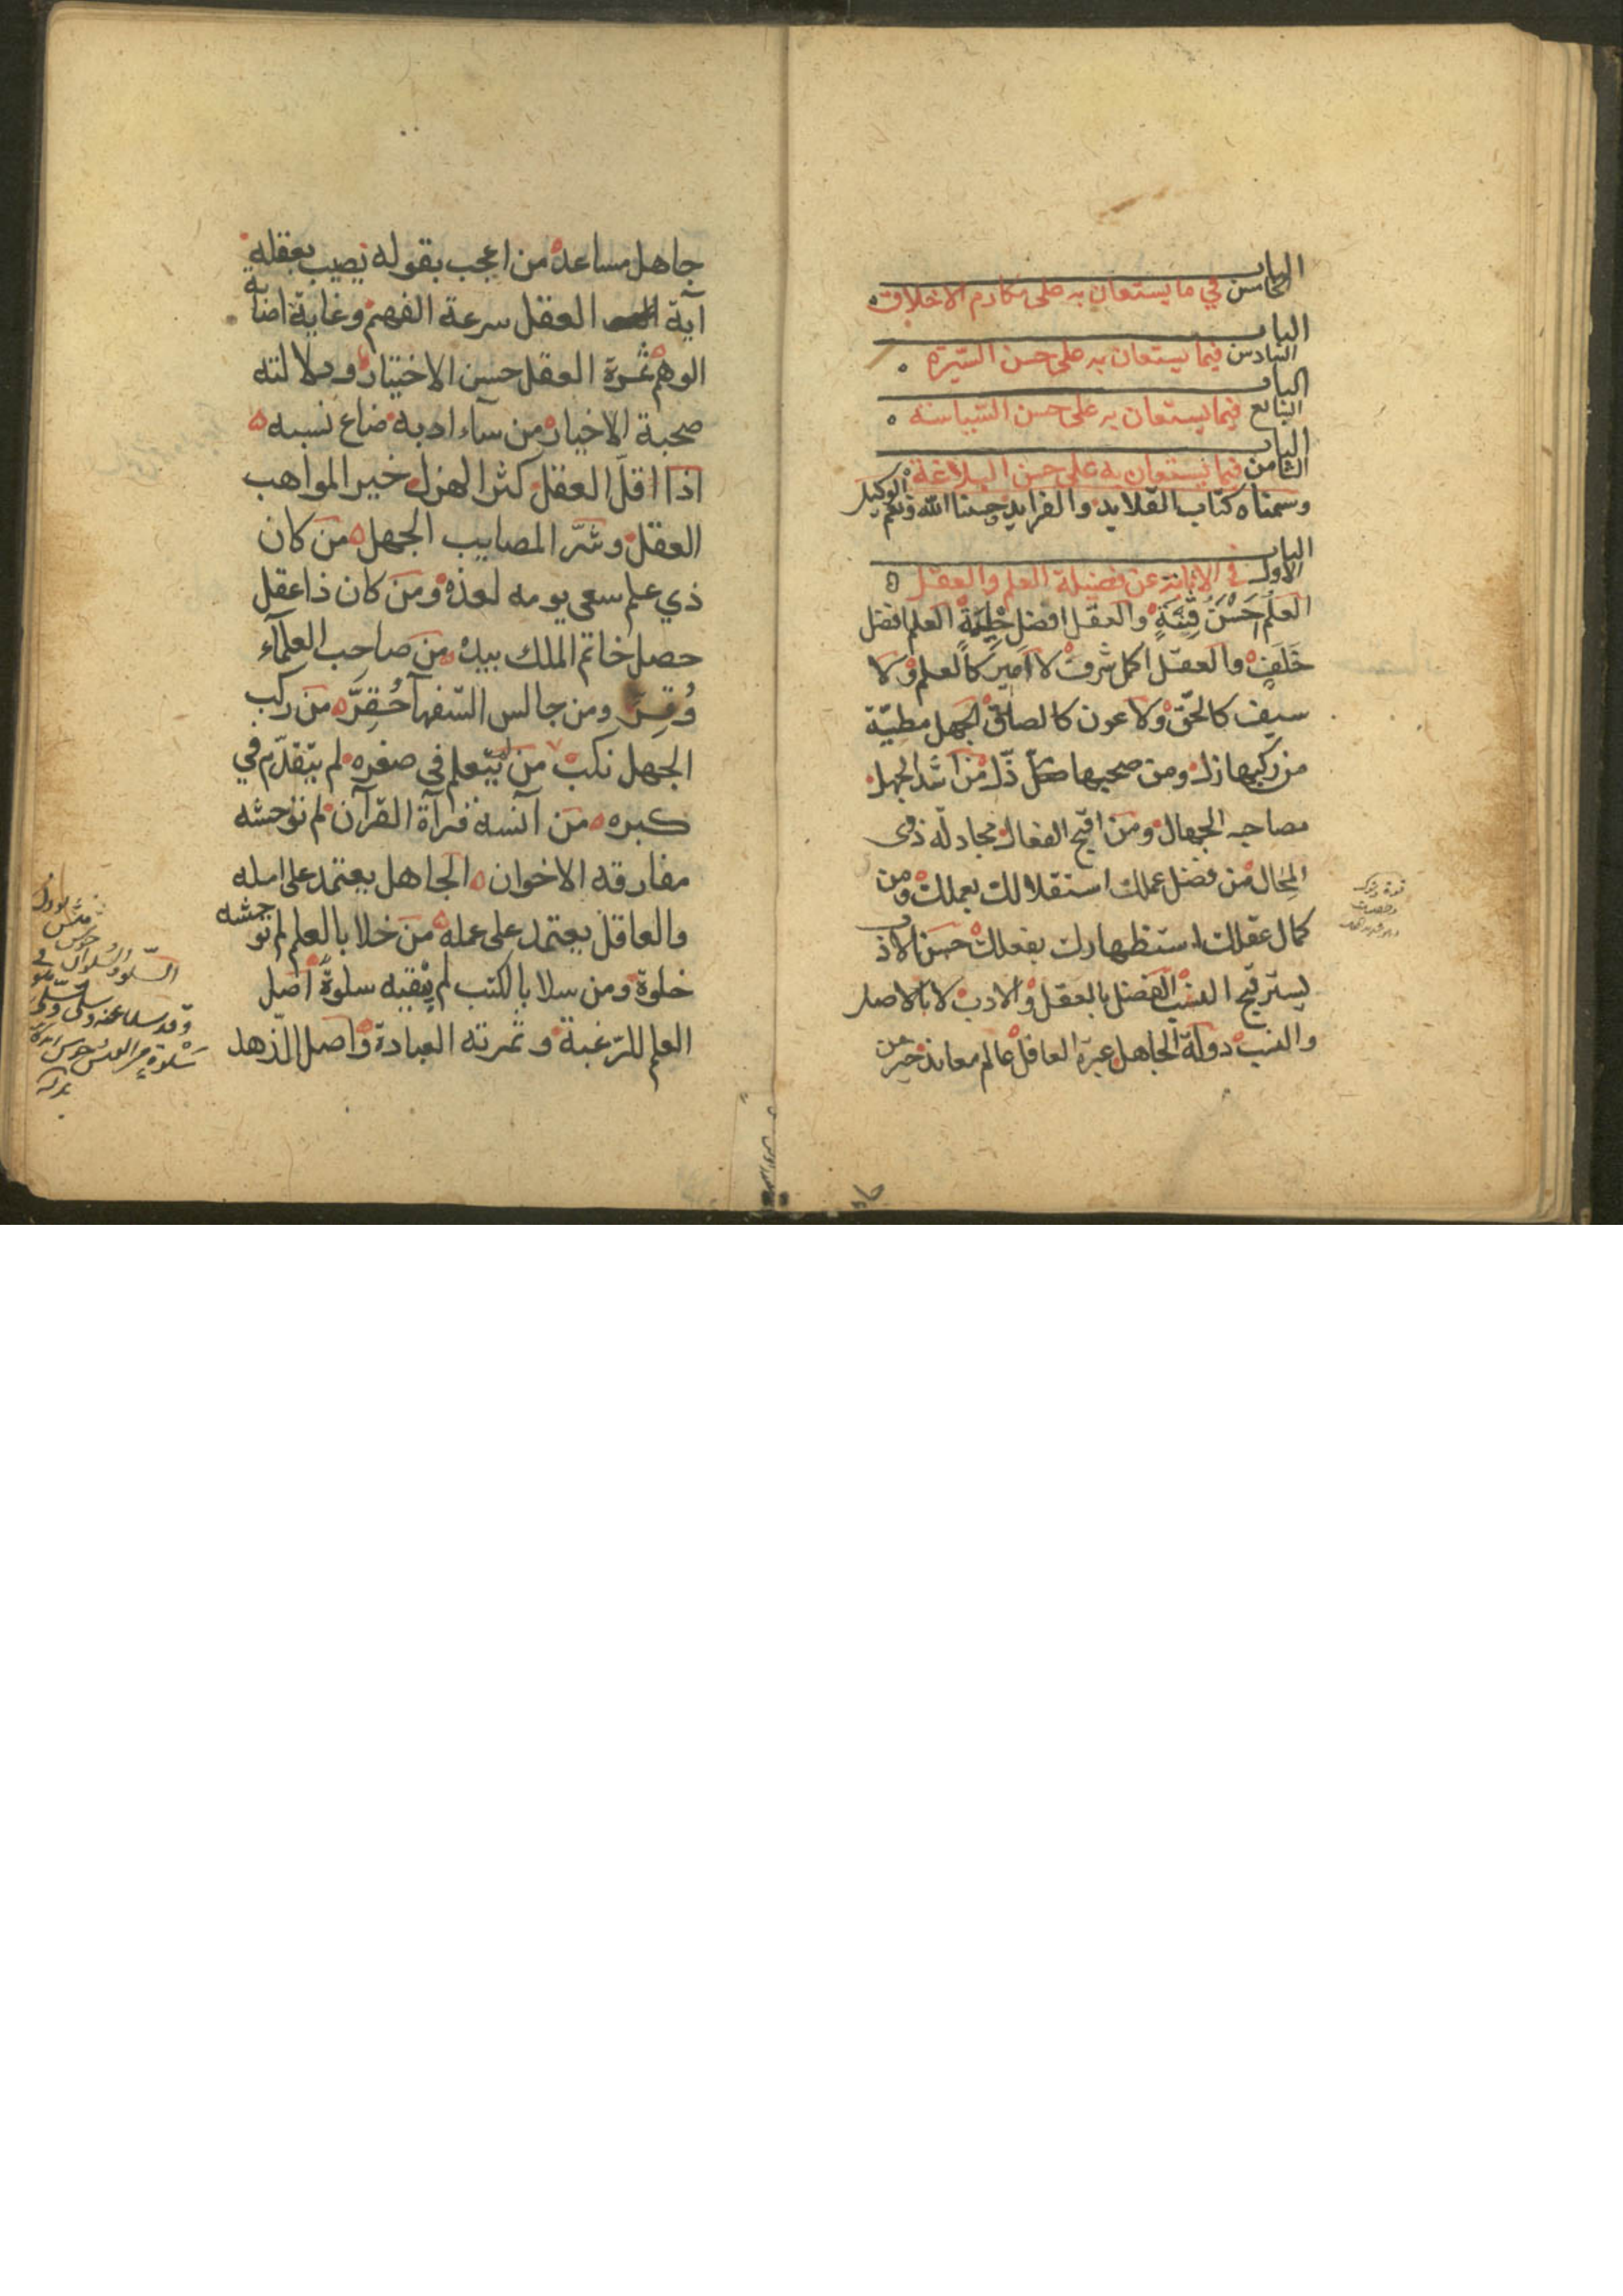 الباب
الخامس في ما يستعان به على مكارم الاخلاق
الباب
السادس فيما يستعان به على حسن السيرة
الباب
السابع فيما يستعان به على حسن السياسة
الباب
الثامن فيما يستعان به على حسن البلاغة
وسمناه كتاب القلايد والفرايد حسبنا الله ونعم الوكيل
الباب
الاول في الابانة عن فضيلة العلم والعقل
العلم احسن قنية والعقل افضل العلم افضل
خلف والعقل اكمل شرف لا كالعلم ولا
سيف كالحق ولا عون كالصدق الجهل مطية
من ركبها زل ومن صحبها ضل ذل من اشد الجهل
مصاحبة الجهال ومن اقبح الفعال مجادلة ذوى
المحال من فضل عملك استقلالك بعملك ومن
كمال عقلك استظهارك بفعلك حسن الادب
يستر قبيح النسب الفضل بالعقل والادب لا بالاصل
والنسب دولة الجاهل عبرة العاقل عالم معاند خير من
جاهل مساعد من اعجب بقوله بعقله
آية العقل سرعة الفهم وغاية اصابة
الوهم ثمرة العقل حسن الاختيار ودلالته
صحبة الاخيار من سآء ادبه ضاع نسبه
اذا اقل العقل كثر الهزل خير المواهب
العقل وشرّ المصايب الجهل من كان
ذي علم سعى يومه لغده ومن كان ذا عقل
حصل خاتم الملك بيده من صاحب العلمآء
وُقِّر ومن جالس السفهآ حُقِّر من ركب
الجهل نكب من لم يتعلم في صغره لم يتقدّم في
كبره من آنسه قرآة القرآن لم توحشه
مفارقه الاخوان الجاهل يعتمد على امله
والعاقل يعتمد على عمله من خلا بالعلم لم توحشه
خلوة ومن سلا بالكتب لم سلوة اصل
العلم للرغبة وثمرته العبادة واصل الزهد